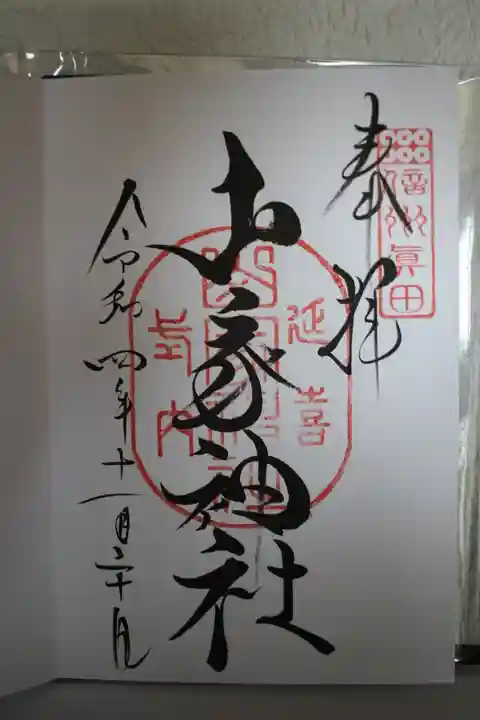 奉拝
信州真田
山家神社
延喜
式内
令和四年十一月二十日